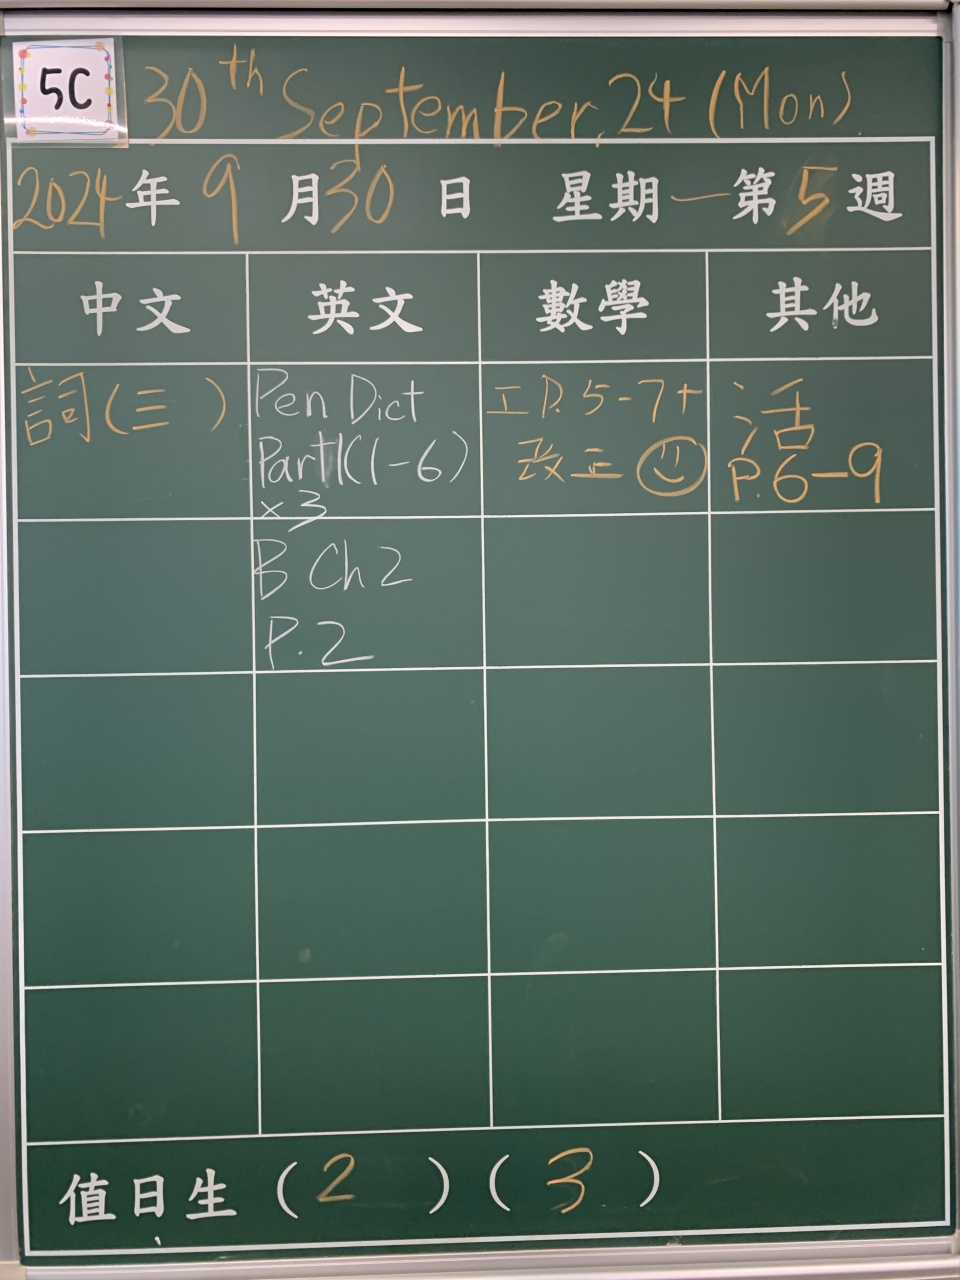 5C
30th September, 24 (Mon)
2024年 9月30日 星期一 第5週
中文 英文 數學 其他
詞(三)
Pen Dict
Part1K(1-6)
×3
B Ch 2
P.2
工P.5-7+
改正
活
P.6-9
值日生 (2) (3)